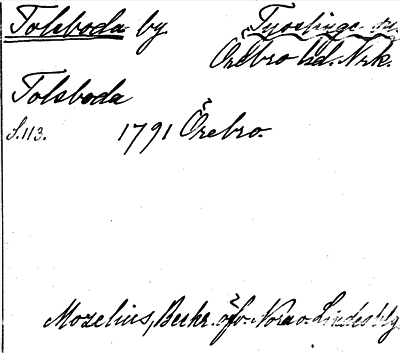 Tolsboda by Tysslinge sn.
Örebro hd. Nrk.
Tolsboda
S. 113. 1791 Örebro.
Moselius, Beskr. öfv. Nora o. Lindes blg